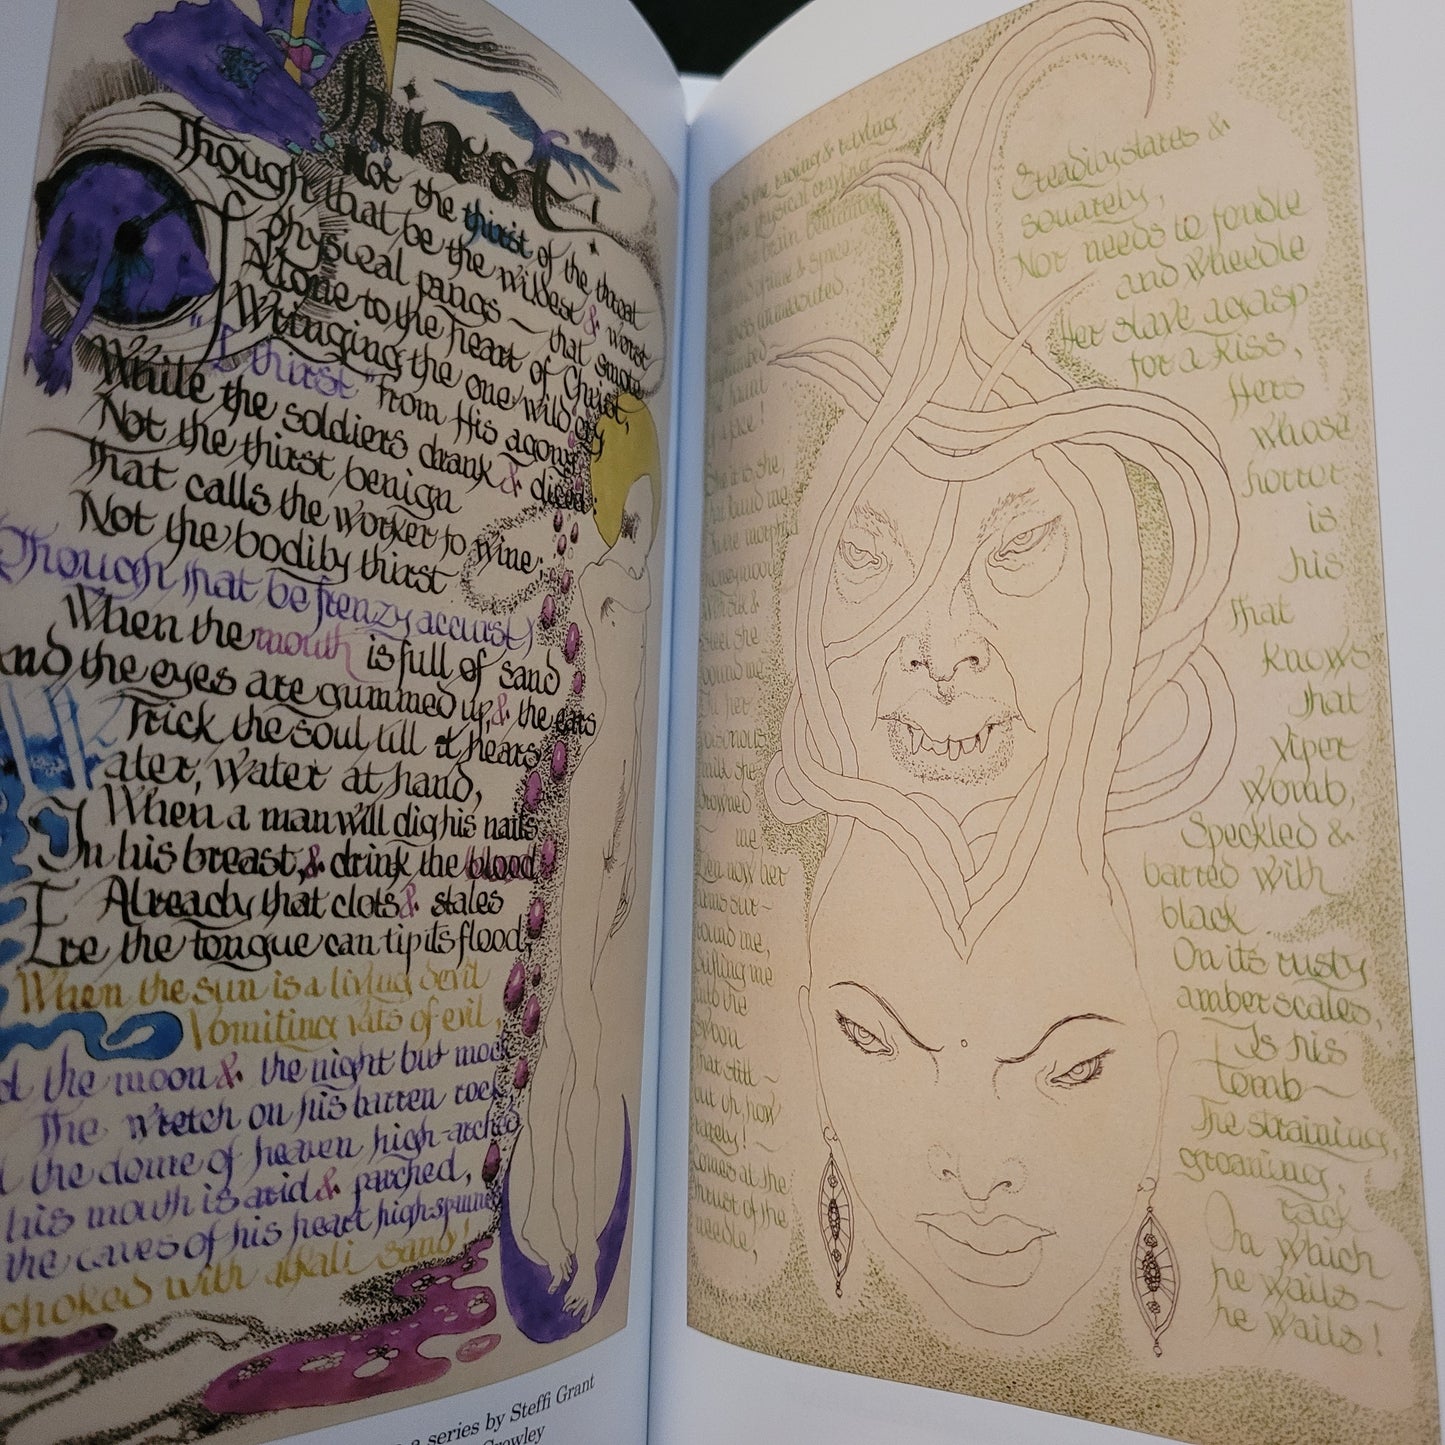 Thirst!
Not the thirst of the throat
Though that be the wildest & worst
physical pangs — that smote
Alone to the heart of Christ,
Wringing the one wild cry
"I thirst" from His agony,
While the soldiers drank & diced:
Not the thirst benign
That calls the worker to wine;
Not the bodily thirst
(Though that be frenzy accurst)
When the mouth is full of sand
And the eyes are gummed up, & the ears
Trick the soul till it hears
ater, water at hand,
When a man will dig his nails
In his breast, & drink the blood
Already that clots & stales
Ere the tongue can tip its flood,
When the sun is a living devil
Vomiting vats of evil,
d the moon & the night but mock
The wretch on his barren rock,
the dome of heaven high-arched
his mouth is arid & parched,
the caves of his heart high-spanned
choked with alkali sand!
a series by Steffi Grant
Crowley
the physical craving
the brain
& space
She it is she,
that found me
In the morphia
honeymoon
With silk &
steel she
bound me
In her
poisonous
milk she
drowned
me
Even now her
arms sur—
round me,
Stifling me
into the
swoon
That still —
but oh, how
rarely! —
Comes at the
thrust of the
needle,
Steadily stares &
squarely,
Nor needs to fondle
and wheedle
Her slave agasp
for a kiss,
Hers
whose
horror
is
his
That
knows
that
viper
womb,
Speckled &
barred with
black
On its rusty
amber scales,
Is his
tomb —
The straining,
groaning,
rack
On which
he wails —
he wails!